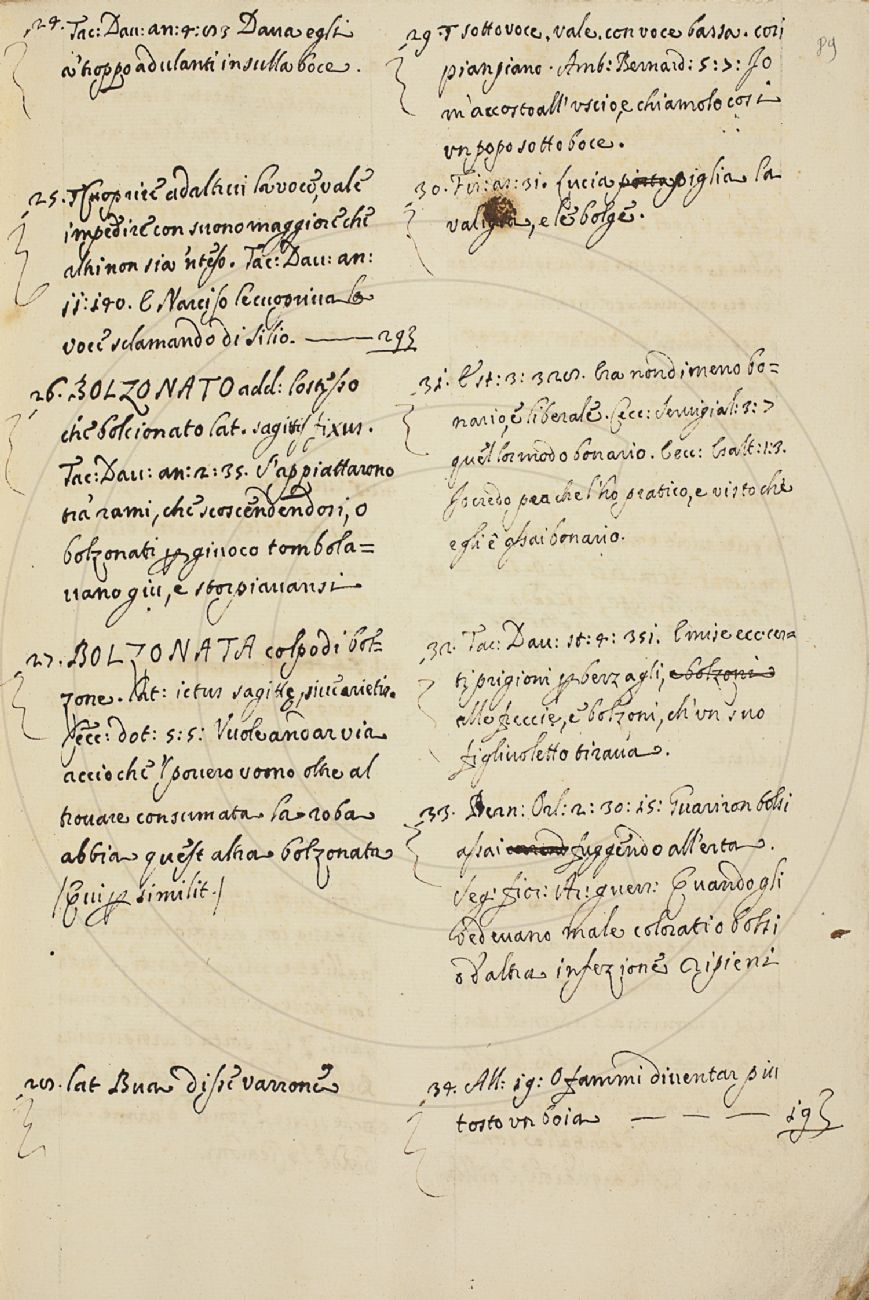 24. Tac: Dau: an: 4: 83 Daua egli
a' troppo adulanti in sulla boce.
25. T Cuoprire ad altrui la voce, vale
impedire con suono maggiore che
altri non sia 'nteso. Tac: Dau: an:
11: 140. E Narciso le cuopriua la
voce sclamando di Silio. 29
26. BOLZONATO add: lo stesso
che bolcionato lat. sagitta fixus.
Tac: Dau: an: 2: 35. S'appiattarono
tra' rami, che scoscendendosi, o
bolzonati per giuoco tombola=
uano giu, e storpiauansi
27. BOLZONATA colpo di bol=
zone. Lat: ictus sagitte, siue arietis.
Cecc: dot: 5: 5: Vuole andar via
accioche 'l pouero uomo oltre al
trouare consumata la roba
abbia quest'altra bolzonata
/Qui per similit./
28. lat Bua disse varrone
29. T sotto voce, vale. con voce bassa. cosi
pian piano. Amb: Bernard: 5: 7: Io
m'accosto all'uscio, e chiamolo cosi
un popo sotto boce.
30. Fir: as: 31. Lucia piglia la
valigia, e le bolge.
31. E st: 3: 328. Era nondimeno bo=
nario, e liberale. Cecc: Seruigial: 3: 7
quel lor modo bonario. E ecc: Esalt: 1: 3.
Io credo pea che l'ho pratico, e visto che
egli è assai bonario.
32. Tac: Dau: st: 4: 351. E mise ecc: cer=
ti prigioni per berzagli, e bolzoni
alle freccie, e bolzoni, ch'un suo
figliuoletto tiraua.
33. Bern: Orl: 2: 30: 15: Guariron bolsi
assai fuggendo all'erta.
Seg: fior: Ar: guerr: Quando gli
vedeuano male colorati o bolsi
o d'altra infezione ripieni
34. All: 19: O fammi diuentar piu
tosto un boia — — — 19
89